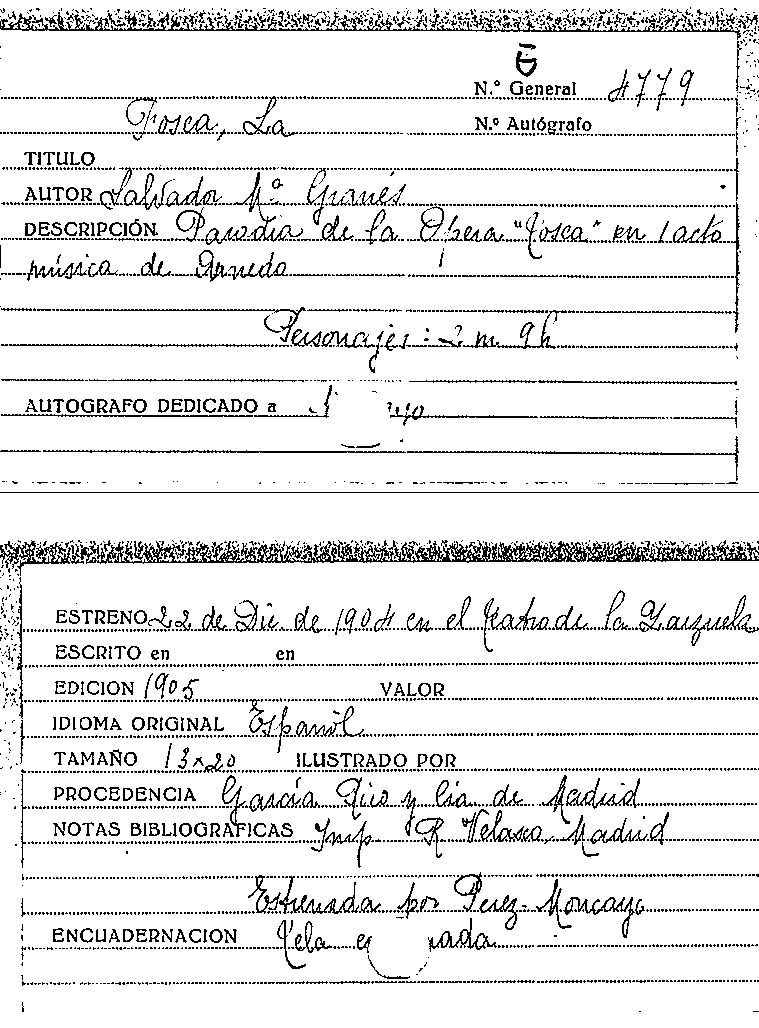 N.º General 4779
Fosca, La
N.º Autógrafo
TITULO
AUTOR Salvador Mª Granés
DESCRIPCIÓN Parodia de la Opera "Tosca" en 1 acto
música de Arnedo
Personajes: 2 m 9 h
AUTOGRAFO DEDICADO a
ESTRENO 22 de Dic. de 1904 en el Teatro de la Zarzuela
ESCRITO en en
EDICION 1905 VALOR
IDIOMA ORIGINAL Español
TAMAÑO 13x20 ILUSTRADO POR
PROCEDENCIA García Rico y Cía de Madrid
NOTAS BIBLIOGRAFICAS Imp R Velasco Madrid
Estrenada por Perez-Moncayo
ENCUADERNACION Tela